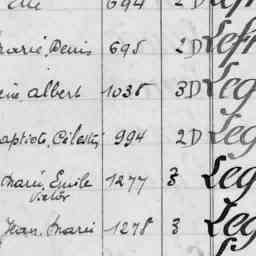 694 2D
Marie, Denis 695 2D Lefr
albert 1035 3D Leg
Baptiste, Célestin 994 2D Leg
Marie, Emile 1277 3 Leg
Victor
Jean, Marie 1278 3 Leg